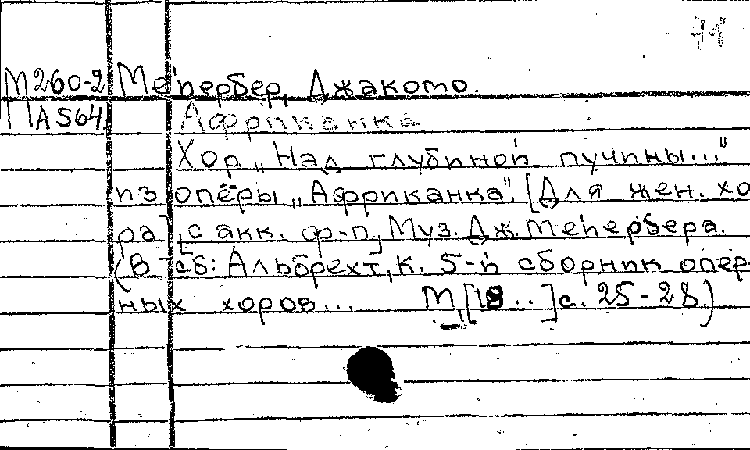 М260-2 Мейербер, Джакомо.
ПА564 Африканка
Хор „Над глубиной пучины..."
из оперы „Африканка". [Для жен. хо
ра] [с акк. ф-п] Муз. Дж. Мейербера.
(В сб: Альбрехт, К. 5-й сборник опер
ных хоров... М, [18..] с. 25-28.)